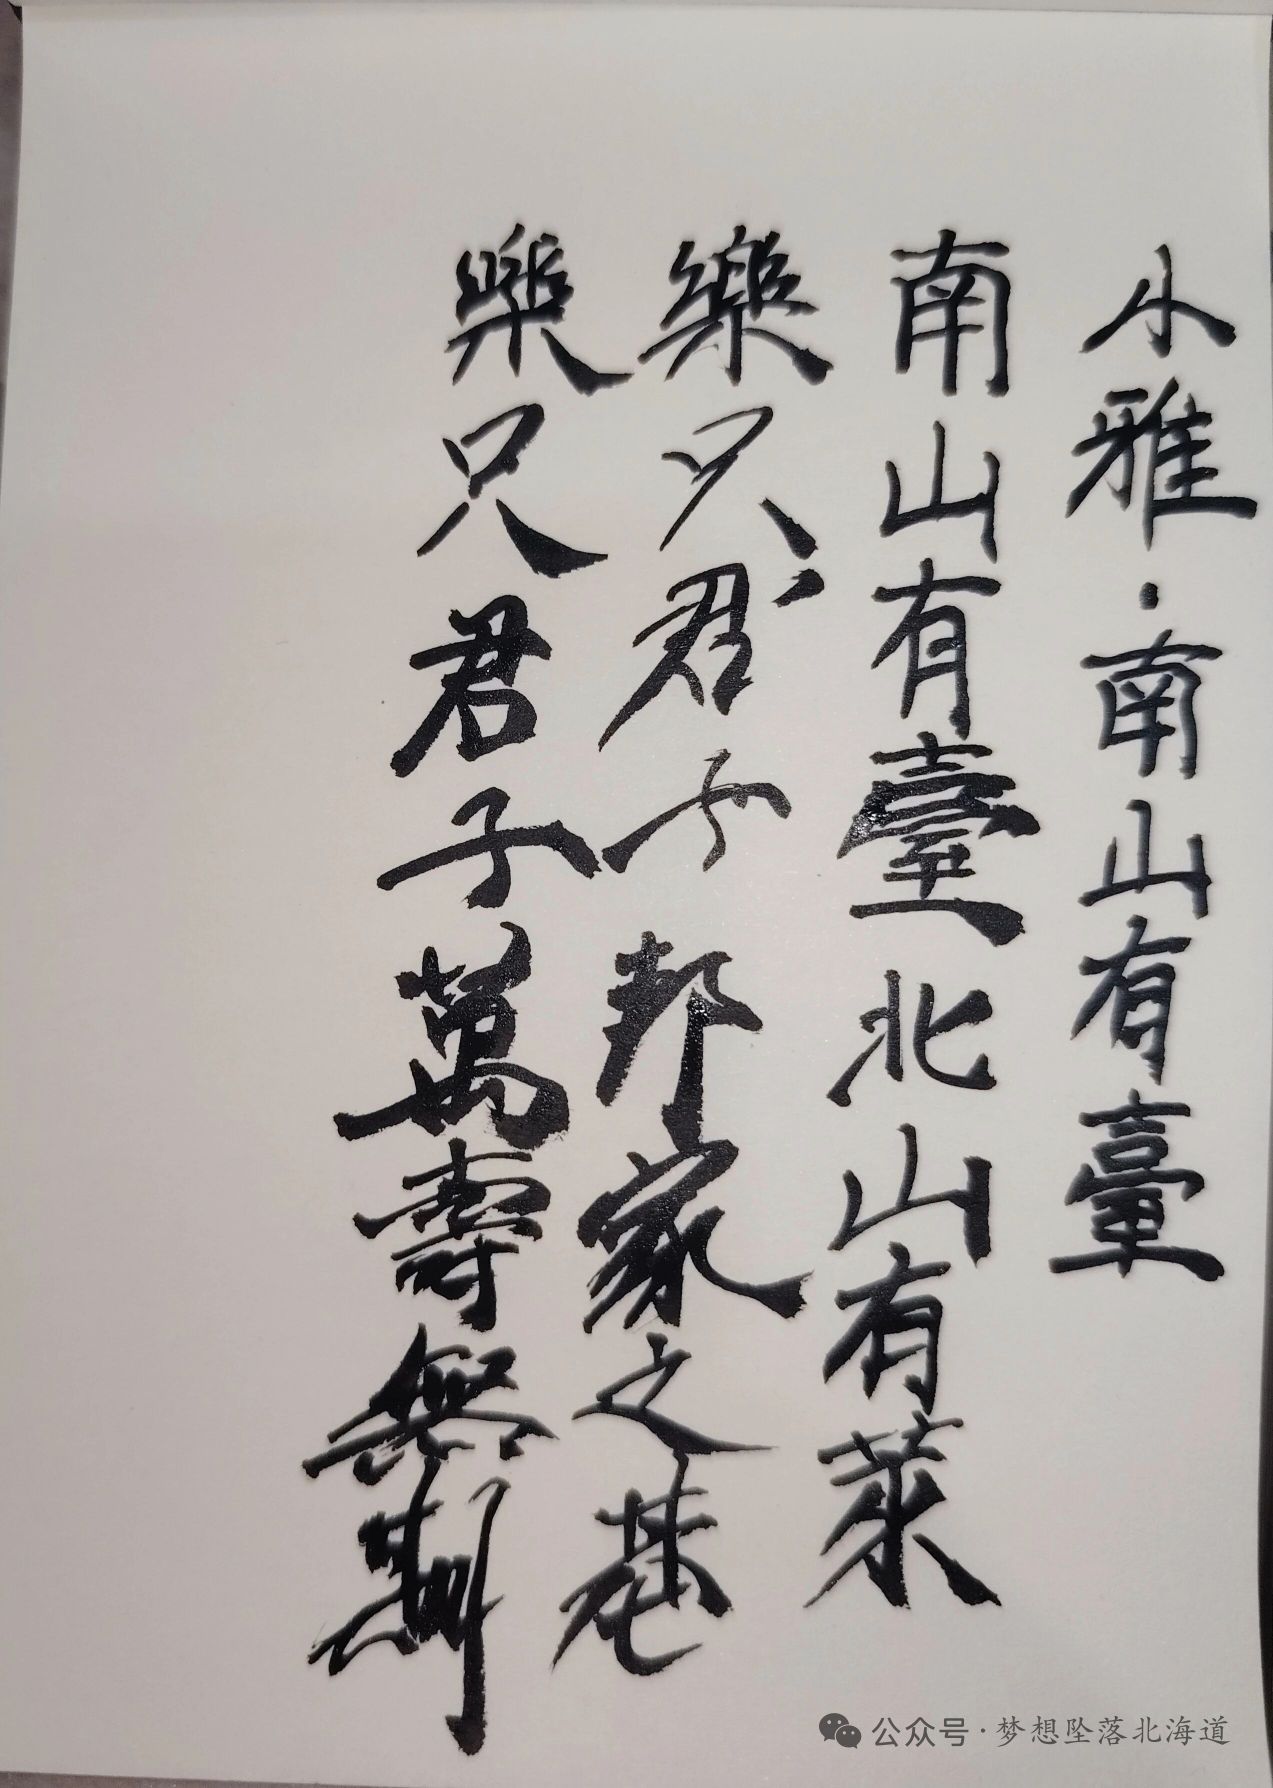 小雅·南山有臺
南山有臺北山有萊
樂只君子邦家之基
樂只君子萬壽無期
公众号·梦想坠落北海道